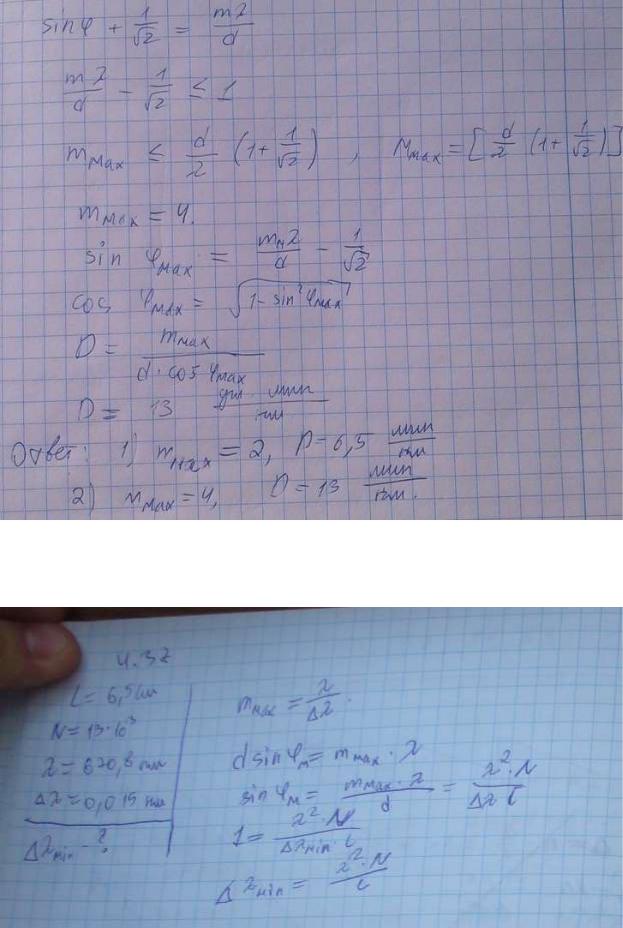 sin φ + 1/√2 = mλ/d
mλ/d - 1/√2 ≤ 1
m max ≤ d/λ (1 + 1/√2) , m max = [d/λ (1 + 1/√2)]
m max = 4.
sin φ max = m м λ/d - 1/√2
cos φ max = √(1 - sin² φ max)
D = m max/(d · cos φ max)
D = 13 угл. мин/нм
Ответ: 1) m max = 2, D = 6,5 мин/нм
2) m max = 4, D = 13 мин/нм.
4.37
L = 6,5 см
N = 13·10³
λ = 670,8 нм
Δλ = 0,015 нм
Δλ min - ?
m max = λ/Δλ.
d sin φ м = m max · λ
sin φ м = m max · λ/d = λ² · N/Δλ L
1 = λ² · N/Δλ min · L
Δλ min = λ² · N/L